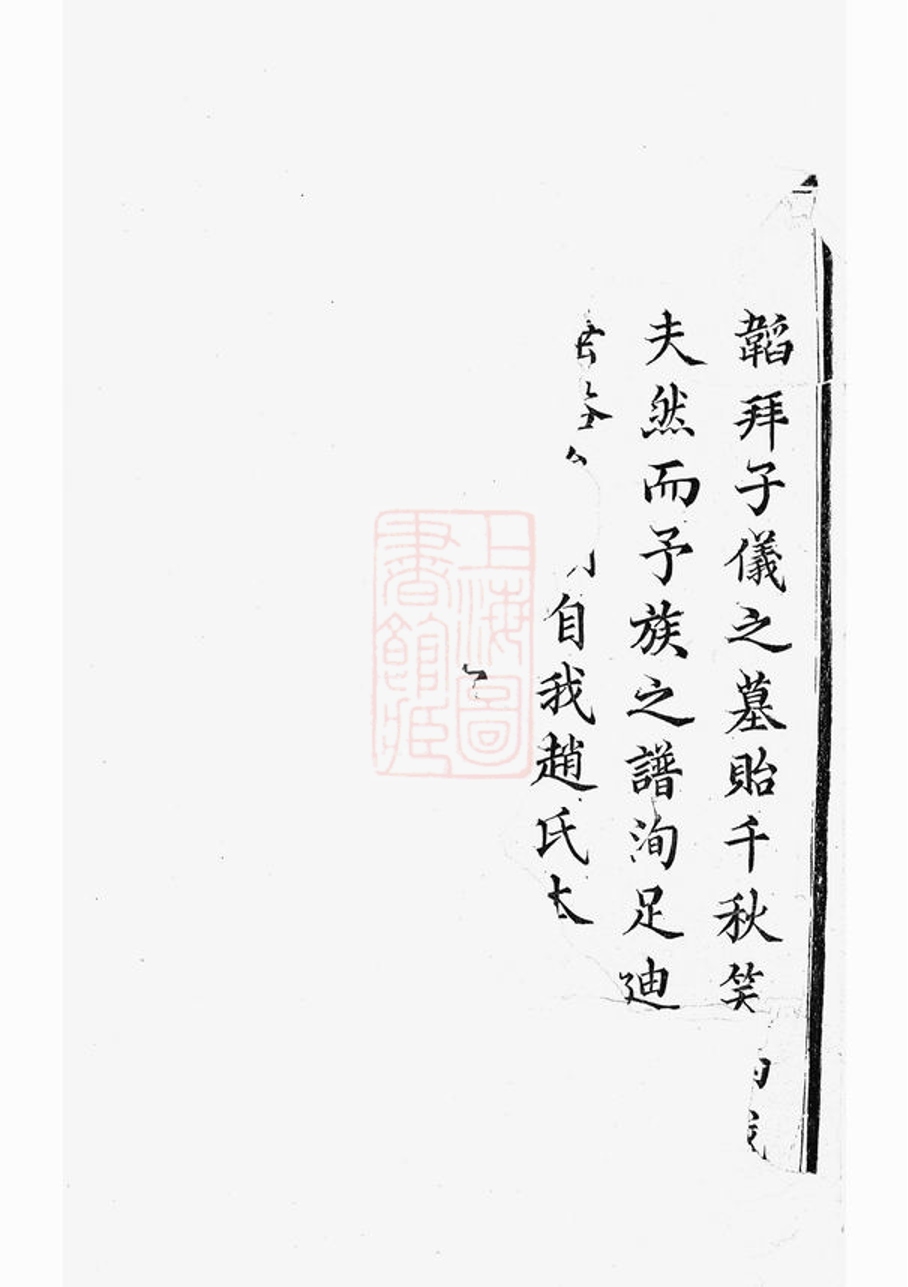 韜拜子儀之墓貽千秋笑
夫然而予族之譜洵足迪
自我趙氏
上海圖書館藏